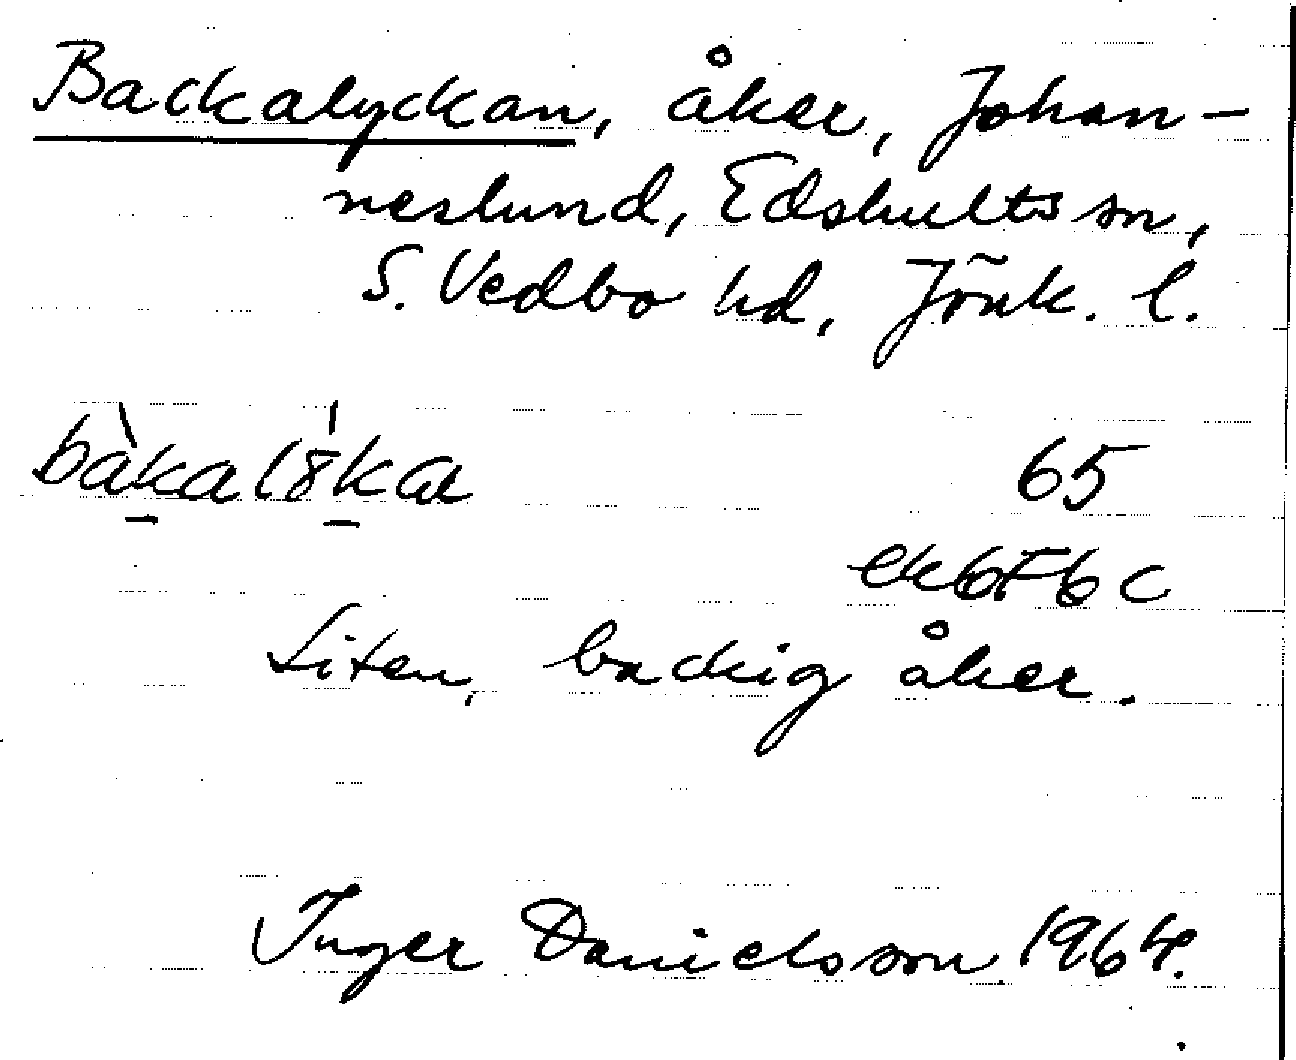 Backalyckan, åker, Johan-
neslund, Edshults sn,
S. Vedbo hd, Jönk. l.
65
ek6F6c
Liten, backig åker.
Inger Danielsson 1964.